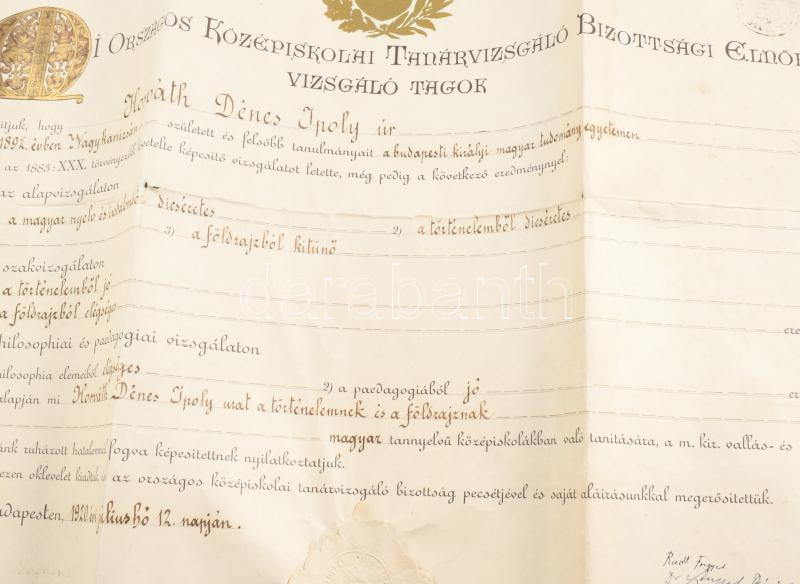 M
Í ORSZÁGOS KÖZÉPISKOLAI TANÁRVIZSGÁLÓ BIZOTTSÁGI ELNÖK
VIZSGÁLÓ TAGOK
ítjuk, hogy Horváth Dénes Ipoly úr
1892. évben Nagykanizsán született és felsőbb tanulmányait a budapesti királyi magyar tudományegyetemen
az 1883: XXX. törvényczikk követelte képesítő vizsgálatot letette, még pedig a következő eredménynyel:
az alapvizsgálaton
a magyar nyelv és irodalomból dicséretes 2) a történelemből dicséretes
3) a földrajzból kitünő
szakvizsgálaton
a történelemből jó
a földrajzból elégséges ere
philosophiai és paedagogiai vizsgálaton
philosophia elemeiből elégséges 2) a paedagogiából jó er
alapján mi Horváth Dénes Ipoly urat a történelemnek és a földrajznak
magyar tannyelvű középiskolákban való tanítására, a m. kir. vallás- és
ánk ruházott hatalomnál fogva képesítettnek nyilatkoztatjuk.
ezen oklevelet kiadtuk, és az országos középiskolai tanárvizsgáló bizottság pecsétjével és saját aláírásunkkal megerősítettük.
udapesten, 1920. évi július hó 12. napján.
darabanth